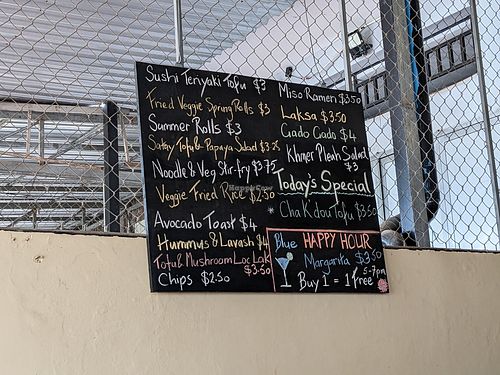 Sushi Teriyaki Tofu $3
Fried Veggie Spring Rolls $3
Summer Rolls $3
Satay Tofu & Papaya Salad $3.25
Noodle & Veg Stir-fry $3.75
Veggie Fried Rice $2.50
Avocado Toast $4
Hummus & Lavash $4
Tofu & Mushroom Loc Lak $3.50
Chips $2.50
Miso Ramen $3.50
Laksa $3.50
Gado Gado $4
Khmer Pleah Salad
$3
Today's Special
* Cha K'dou Tofu $3.50
Blue HAPPY HOUR
Margarita $3.50
5-7pm
Buy 1 = 1 Free
HappyCow